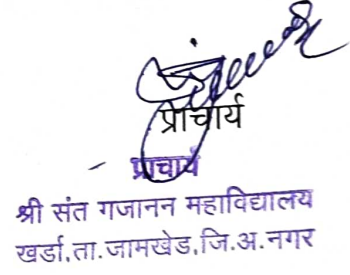 प्राचार्य
प्राचार्य
श्री संत गजानन महाविद्यालय
खर्डा,ता.जामखेड,जि.अ.नगर